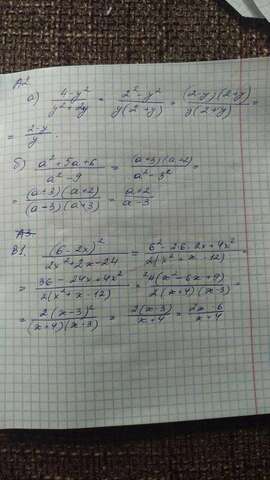 А2
а) (4-y²)/(y²+2y) = (2²-y²)/(y(2+y)) = ((2-y)(2+y))/(y(2+y)) =
= (2-y)/y.
б) (a²+5a+6)/(a²-9) = ((a+3)(a+2))/(a²-3²) =
= ((a+3)(a+2))/((a-3)(a+3)) = (a+2)/(a-3)
А3
В1. (6-2x)²/(2x²+2x-24) = (6²-2·6·2x+4x²)/(2(x²+x-12)) =
= (36-24x+4x²)/(2(x²+x-12)) = (4(x²-6x+9))/(2(x+4)(x-3)) =
= (2(x-3)²)/((x+4)(x-3)) = (2(x-3))/(x+4) = (2x-6)/(x+4)